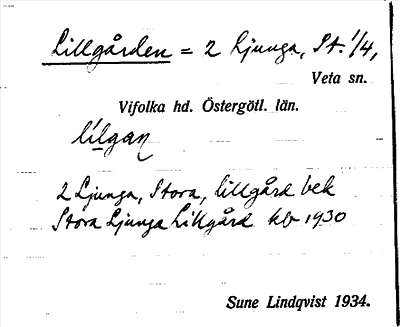 Lillgården = 2 Ljunga, St. 1/4,
Veta sn.
Vifolka hd. Östergötl. län.
lilgan
2 Ljunga, Stora, lillgård bek
Stora Ljunga Lillgård kb 1930
Sune Lindqvist 1934.